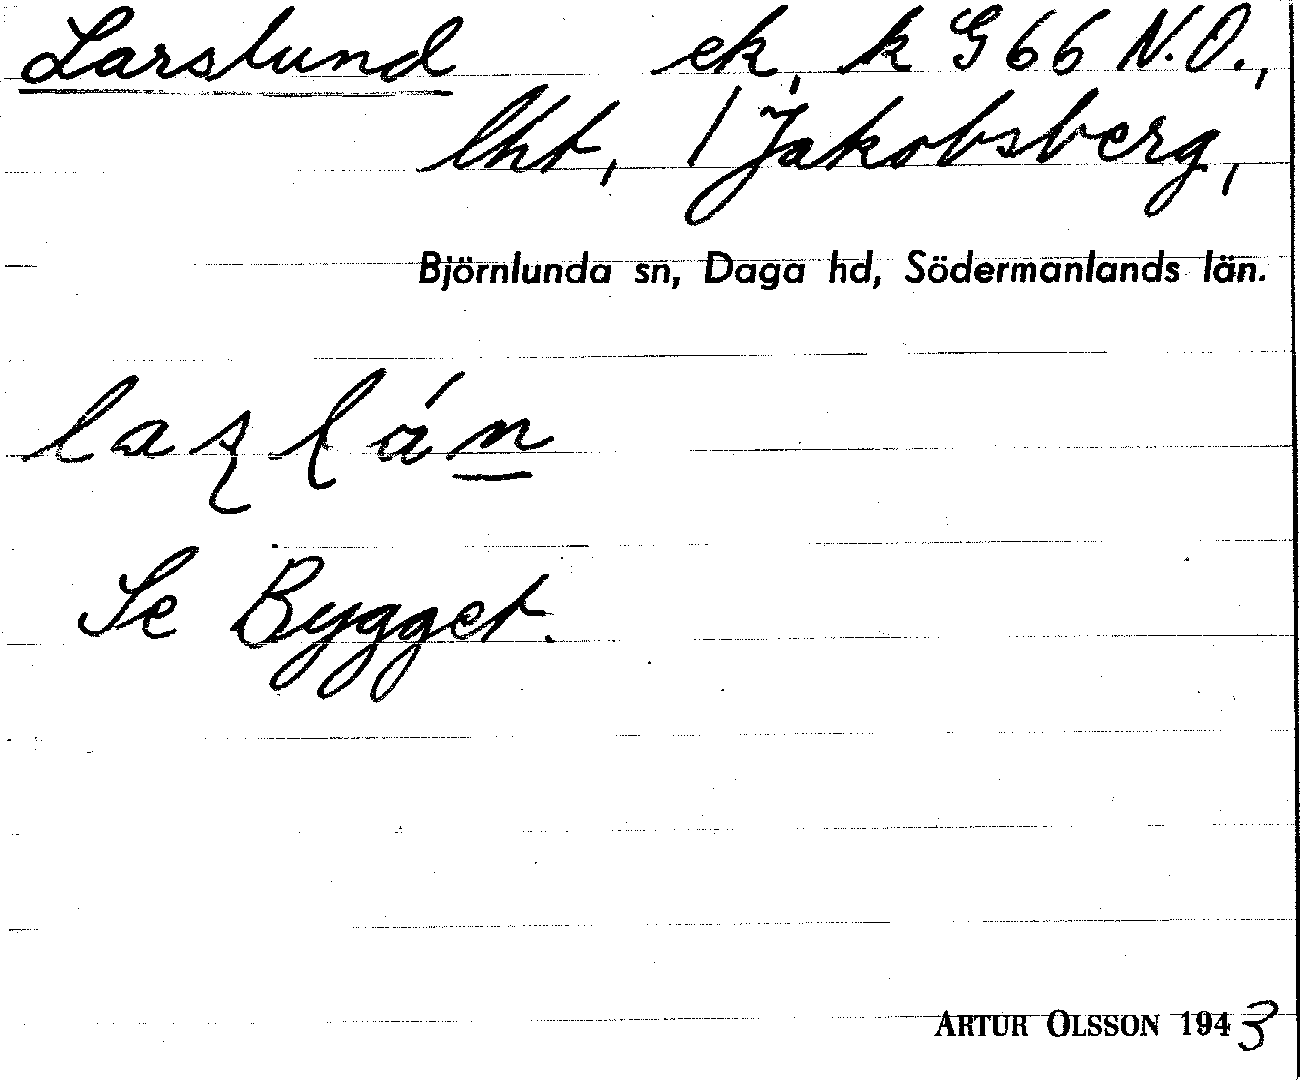 Larslund ek, k G 66 N.O.,
lht, 1 Jakobsberg,
Björnlunda sn, Daga hd, Södermanlands län.
Se Bygget.
ARTUR OLSSON 1943